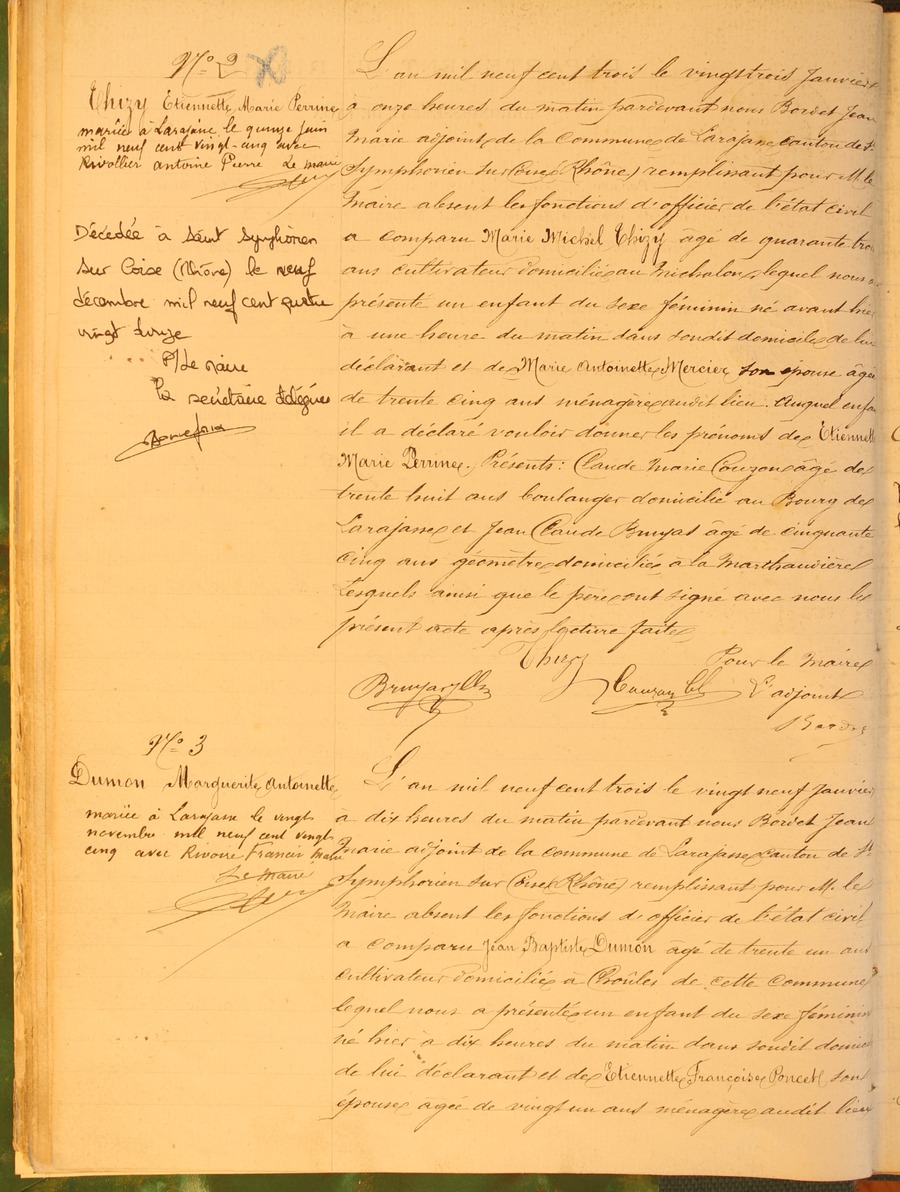 N° 2
Thizy Etiennette Marie Perrine
mariée à Larajasse le quinze juin
mil neuf cent vingt-cinq avec
Rivollier antoine Pierre Le maire
Décédée à Saint Symphorien
sur Coise (Rhône) le neuf
décembre mil neuf cent quatre
vingt
P/Le Maire
la secrétaire déléguée
L'an mil neuf cent trois le vingt trois Janvier
à onze heures du matin pardevant nous Bordet Jean
Marie adjoint de la Commune de Larajasse canton de St
Symphorien sur Coise (Rhône) remplissant pour M. le
Maire absent les fonctions d'officier de l'état civil
a comparu Marie Michel Thizy âgé de quarante trois
ans cultivateur domicilié au Michalon, lequel nous a
présenté un enfant du sexe féminin né avant hier
à une heure du matin dans sondit domicile de lui
déclarant et de Marie Antoinette Mercier son épouse âgée
de trente cinq ans ménagère audit lieu. Auquel enfant
il a déclaré vouloir donner les prénoms de Etiennette
Marie Perrine. Présents : Claude Marie Couzon âgé de
trente huit ans boulanger domicilié au Bourg de
Larajasse et Jean Claude Bruyas âgé de cinquante
cinq ans géomètre domicilié à la Marthaudière
Lesquels ainsi que le père ont signé avec nous le
présent acte après lecture faite
Thizy Pour le Maire
Bruyas Couzon L'adjoint
Bordet
N° 3
Dumon Marguerite Antoinette
mariée à Larajasse le vingt
novembre mil neuf cent vingt
cinq avec Rivoire Francis Marie
Le Maire
L'an mil neuf cent trois le vingt neuf Janvier
à dix heures du matin pardevant nous Bordet Jean
Marie adjoint de la commune de Larajasse canton de St
Symphorien sur Coise (Rhône) remplissant pour M. le
Maire absent les fonctions d'officier de l'état civil
a comparu Jean Baptiste Dumon agé de trente un ans
cultivateur domicilié à Choûles de cette Commune
lequel nous a présenté un enfant du sexe féminin
né hier à dix heures du matin dans sondit domicile
de lui déclarant et de Etiennette Françoise Poncet son
épouse agée de vingt un ans ménagère audit lieu